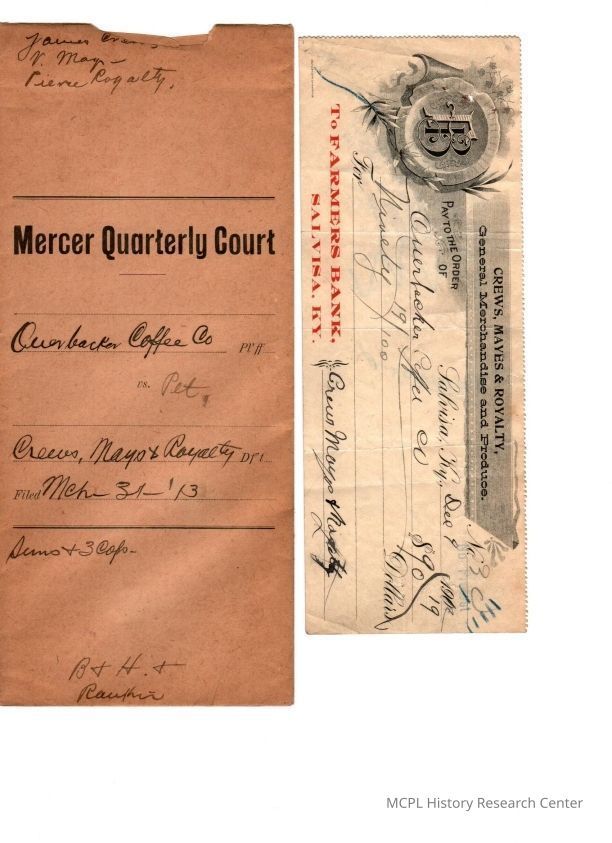 James
V. Mays
Pierre Royalty.
Mercer Quarterly Court
Ouerbacker Coffee Co Pl'ff
vs. Pet,
Crews, Mays & Royalty Df't
Filed Mch- 31- '13
Sums & 3 Cops-
B & H. &
Rankin
CREWS, MAYES & ROYALTY,
General Merchandise and Produce.
No. 3
Salvisa, Ky., Dec 9
PAY TO THE ORDER OF Ouerbacker Coffee Co $90 19
Ninety 19/100 Dollars
For
TO FARMERS BANK,
SALVISA, KY.
Crews Mays & Royalty
B
MCPL History Research Center